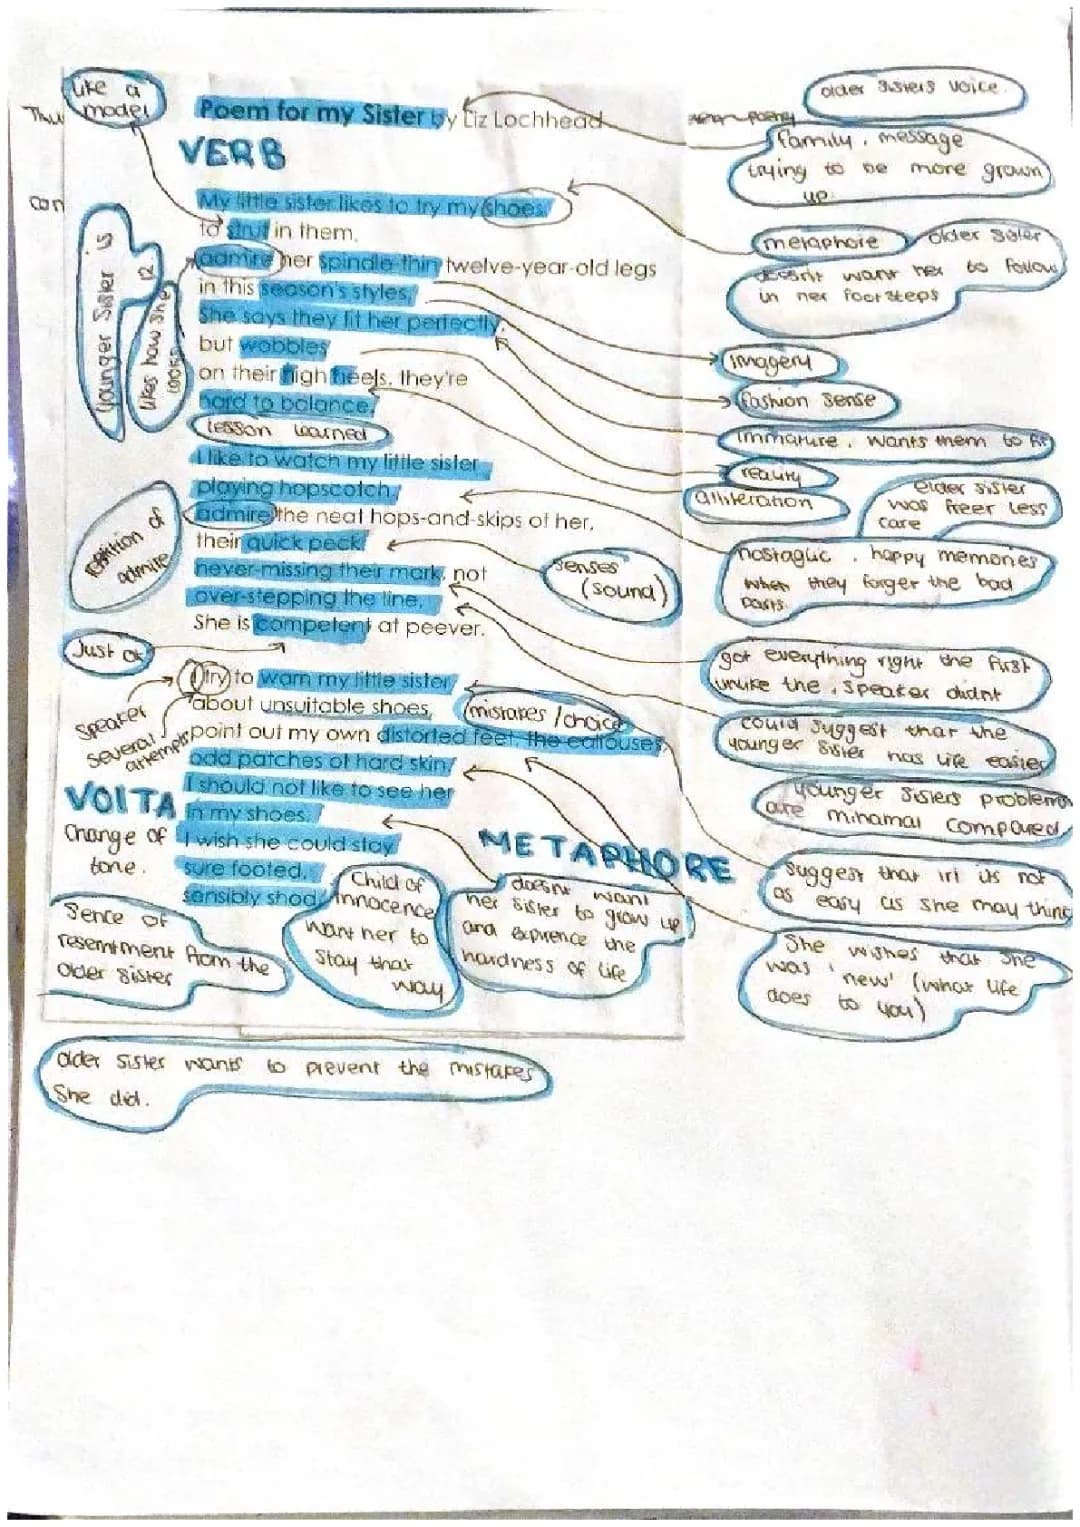 like a
model
Poem for my Sister by Liz Lochhead
VERB
My little sister likes to try my shoes,
to strut in them,
admire her spindle-thin twelve-year-old legs
in this season's styles.
She says they fit her perfectly,
but wobbles
on their high heels, they're
hard to balance.
lesson learned
I like to watch my little sister
playing hopscotch,
admire the neat hops-and-skips of her,
their quick peck,
never-missing their mark, not
over-stepping the line.
She is competent at peever.
I try to warn my little sister
about unsuitable shoes,
point out my own distorted feet, the callouses,
odd patches of hard skin.
I should not like to see her
in my shoes.
I wish she could stay
sure footed,
sensibly shod.
con
younger sister is
12
likes how she
looks
repition of
admire
Just ok
speaker
several
attempts
mistakes / choice
VOLTA
Change of
tone.
Sence of
resentment from the
older sister
METAPHORE
Child of
innocence
want her to
stay that
way
doesnt want
her sister to grow up
and exprience the
hardness of life
older sister wants to prevent the mistakes
She did.
older sisters voice.
family, message
trying to be more grown
up.
metaphore
older sister
doesnt want her to follow
in her footsteps
imagery
fashion sense
immature, wants them to fit
reality
alliteration
elder sister
was freer less
care
nostaglic, happy memories
when they forger the bad
parts.
senses
(sound)
got everything right the first
unlike the, speaker didnt
could suggest that the
younger sister has life easier
younger sisters problems
are minamal compared
suggest that it is not
as easy as she may think
She wishes that she
was 'new' (what life
does to you)